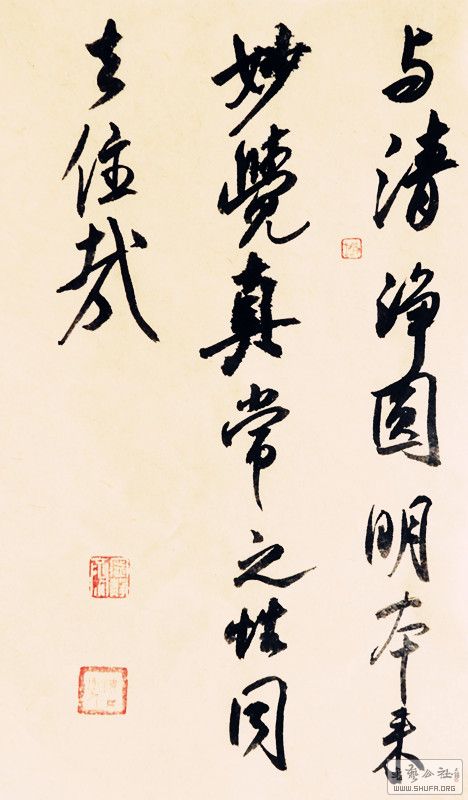 与清淨圓明本来
妙覺真常之性同
去住哉
書藝公社
www.SHUFA.ORG